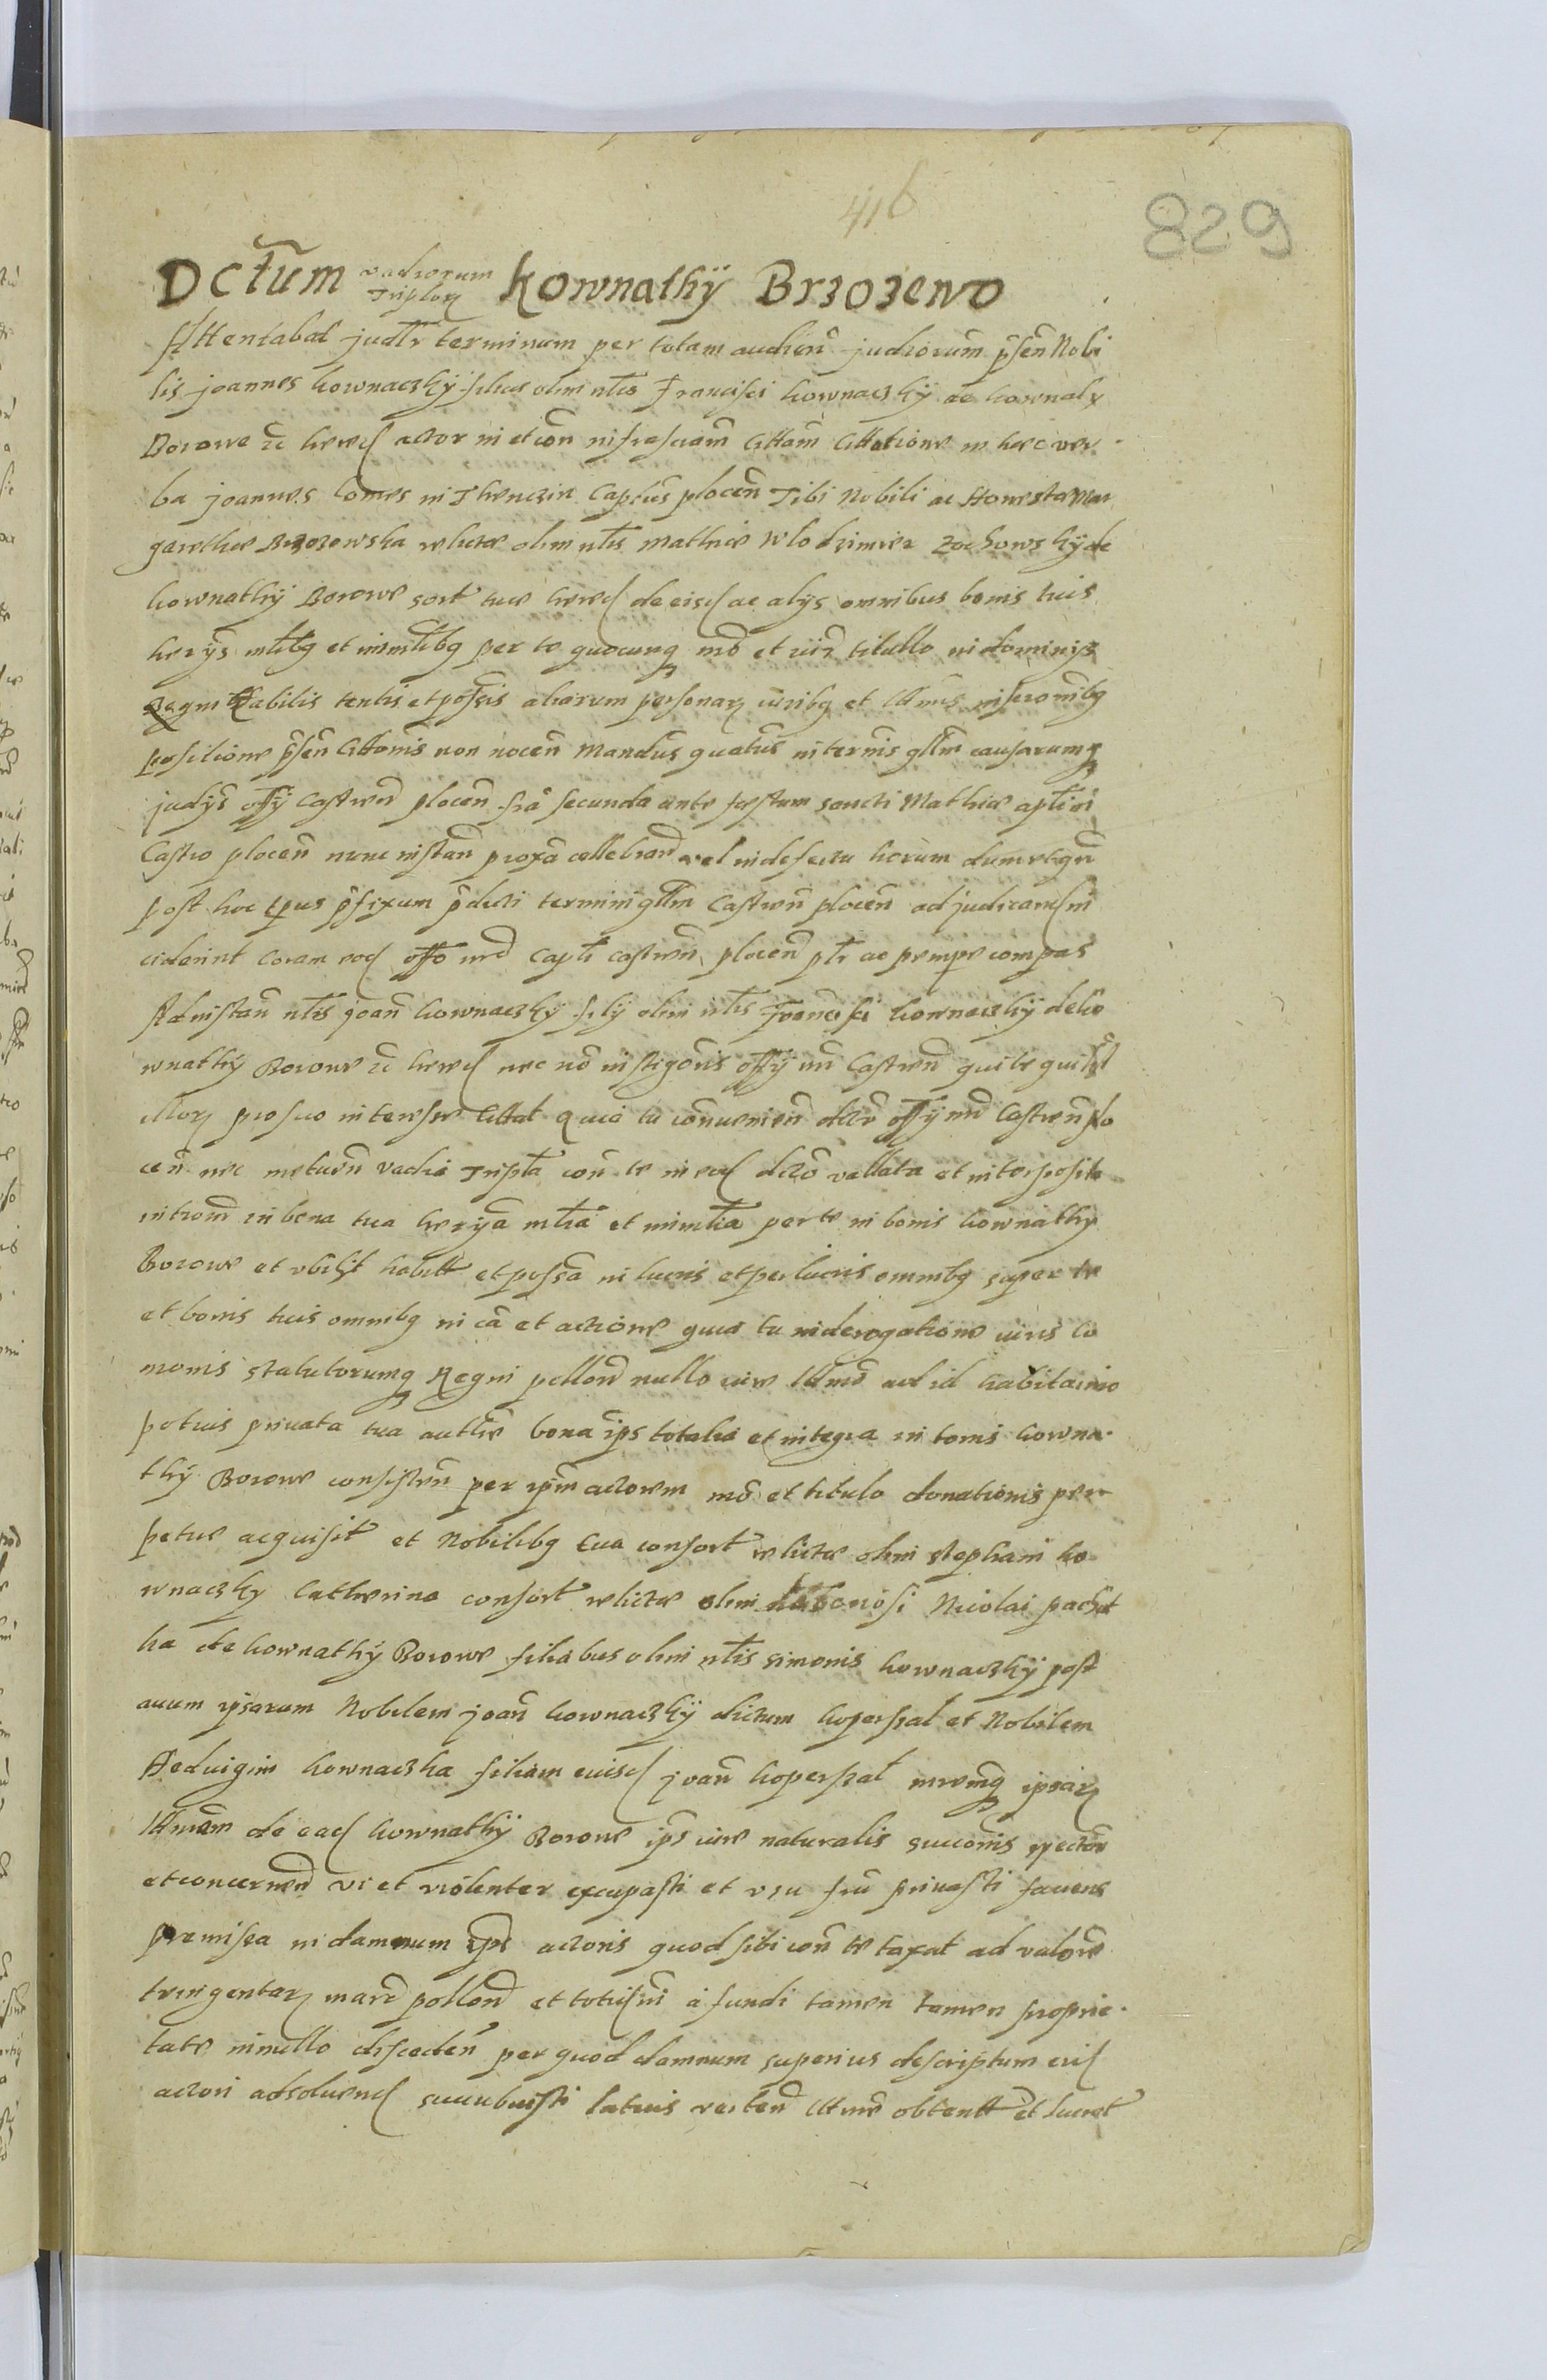 416
829
Dctum vadiorum Triplorz Kownathÿ Brzozewo
Attentabat judtr terminum per totam audien judiorum psen Nobi
lis joannes kownaczkÿ filius olim nlis Francisci kownaczkÿ de kownaty
Borowe hered actor in et con infrascriam Cittam Cittatione in hec ver
ba joannes Comes in Thenczin Captus plocen Tibi Nobili ac Honesta Mar
garethae Brzozowska relictae olim nlis Mathiae Wlodzimierz Zochowskÿ de
kownathÿ Borowe sort tuae hered de eisd ac alys omnibus bonis tuis
herys mlibg et inmlibg per te quocunq mo et iuris titullo in dominys
Regni habilis tentis et possis aliarum personarz iuribg et
positione psen Cittonis non nocen Mandus quatus in terminis gllm causarumq
judys offy Castren plocen fria secunda ante festum sancti Mathiae aptli in
Castro plocen nunc instan proxa cellebrand vel in defectu horum dum
post hoc tpus pfixum pdicti termini gllm Castren plocen ad judicand in
ciderint coram eod offo nro capti castren plocen ptr ac pempe compas
Ad instan nlis joan kownaczkÿ fily olim nlis Francisci kownaczkÿ de ko
wnathÿ Borowe hered nec no instigoris offy nri Castren qui te
illorz pro suo interesse Cittat Quia tu convenien decro offy nri Castren plo
cen nec metuen vadia Tripla con te in eod decro vallata et interposita
introm in bona tua herya mlia et inmlia per te in bonis kownathy
Borowe et ubilzt habitt et possa in lucris et perlucris omnibg super te
et bonis tuis omnibg in ca et actione quia tu in derogatione iuris co
monis statutorumq Regni pollon nullo iure ad id habita imo
potius privata tua authe bona ips totalia et integra in bonis kowna
thÿ Borowe consisten per ipm actorem mo et titulo donationis per
petuae acquisit et Nobilibg Eua consort relictae olim stephani ko
wnaczky Catherina consort relictae olim Nicolai
ka de kownathÿ Borowe filiabus olim nlis simonis kownaczkÿ post
auum ipsarum Nobilem joan kownaczkÿ dictum koperszal et Nobilem
Heduigim kownaczka filiam euisd joan koperszal ipsarz
de ead kownathÿ Borowe ips iure naturalis succonis spectan
et concernen vi et violenter occupasti et usu fru priuasti faciens
premissa in damnum ips actoris quod sibi con te taxat ad valore
tringentarz marc pollon et a fundi tamen tamen proprie
tate in nullo discedên per quod damnum superius descriptum eid
actori adsoluend succubuisti latius obtentt et lucrat